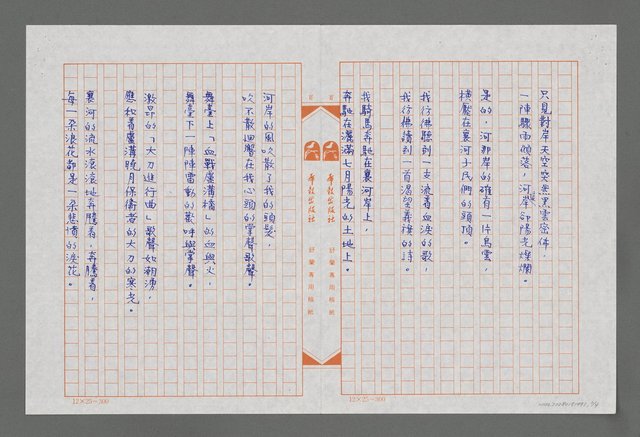 只見對岸天空突然黑雲密佈，
一陣驟雨傾落，河岸卻陽光燦爛。
是的，河那岸的確有一片烏雲，
橫壓在襄河子民們的頭頂。
我彷彿聽到一支流着血淚的歌，
我彷彿讀到一首渴望着復的詩。
我騎馬奔馳在襄河岸上，
奔馳在灑滿七月陽光的土地上。
舒蘭專用稿紙
舒蘭專用稿紙
河岸的風吹散了我的頭髮，
吹不散迴響在我心頭的掌聲歌聲。
舞臺上「血戰盧溝橋」的血與火，
舞臺下一陣陣雷動的歡呼與掌聲。
激昂的「大刀進行曲」歌聲如潮湧，
應和着盧溝曉月保衛者的大刀的寒光。
襄河的流水滾滾地奔騰着，奔騰着，
每一朵浪花都是一朵悲憤的淚花。
12×25=300
12×25=300